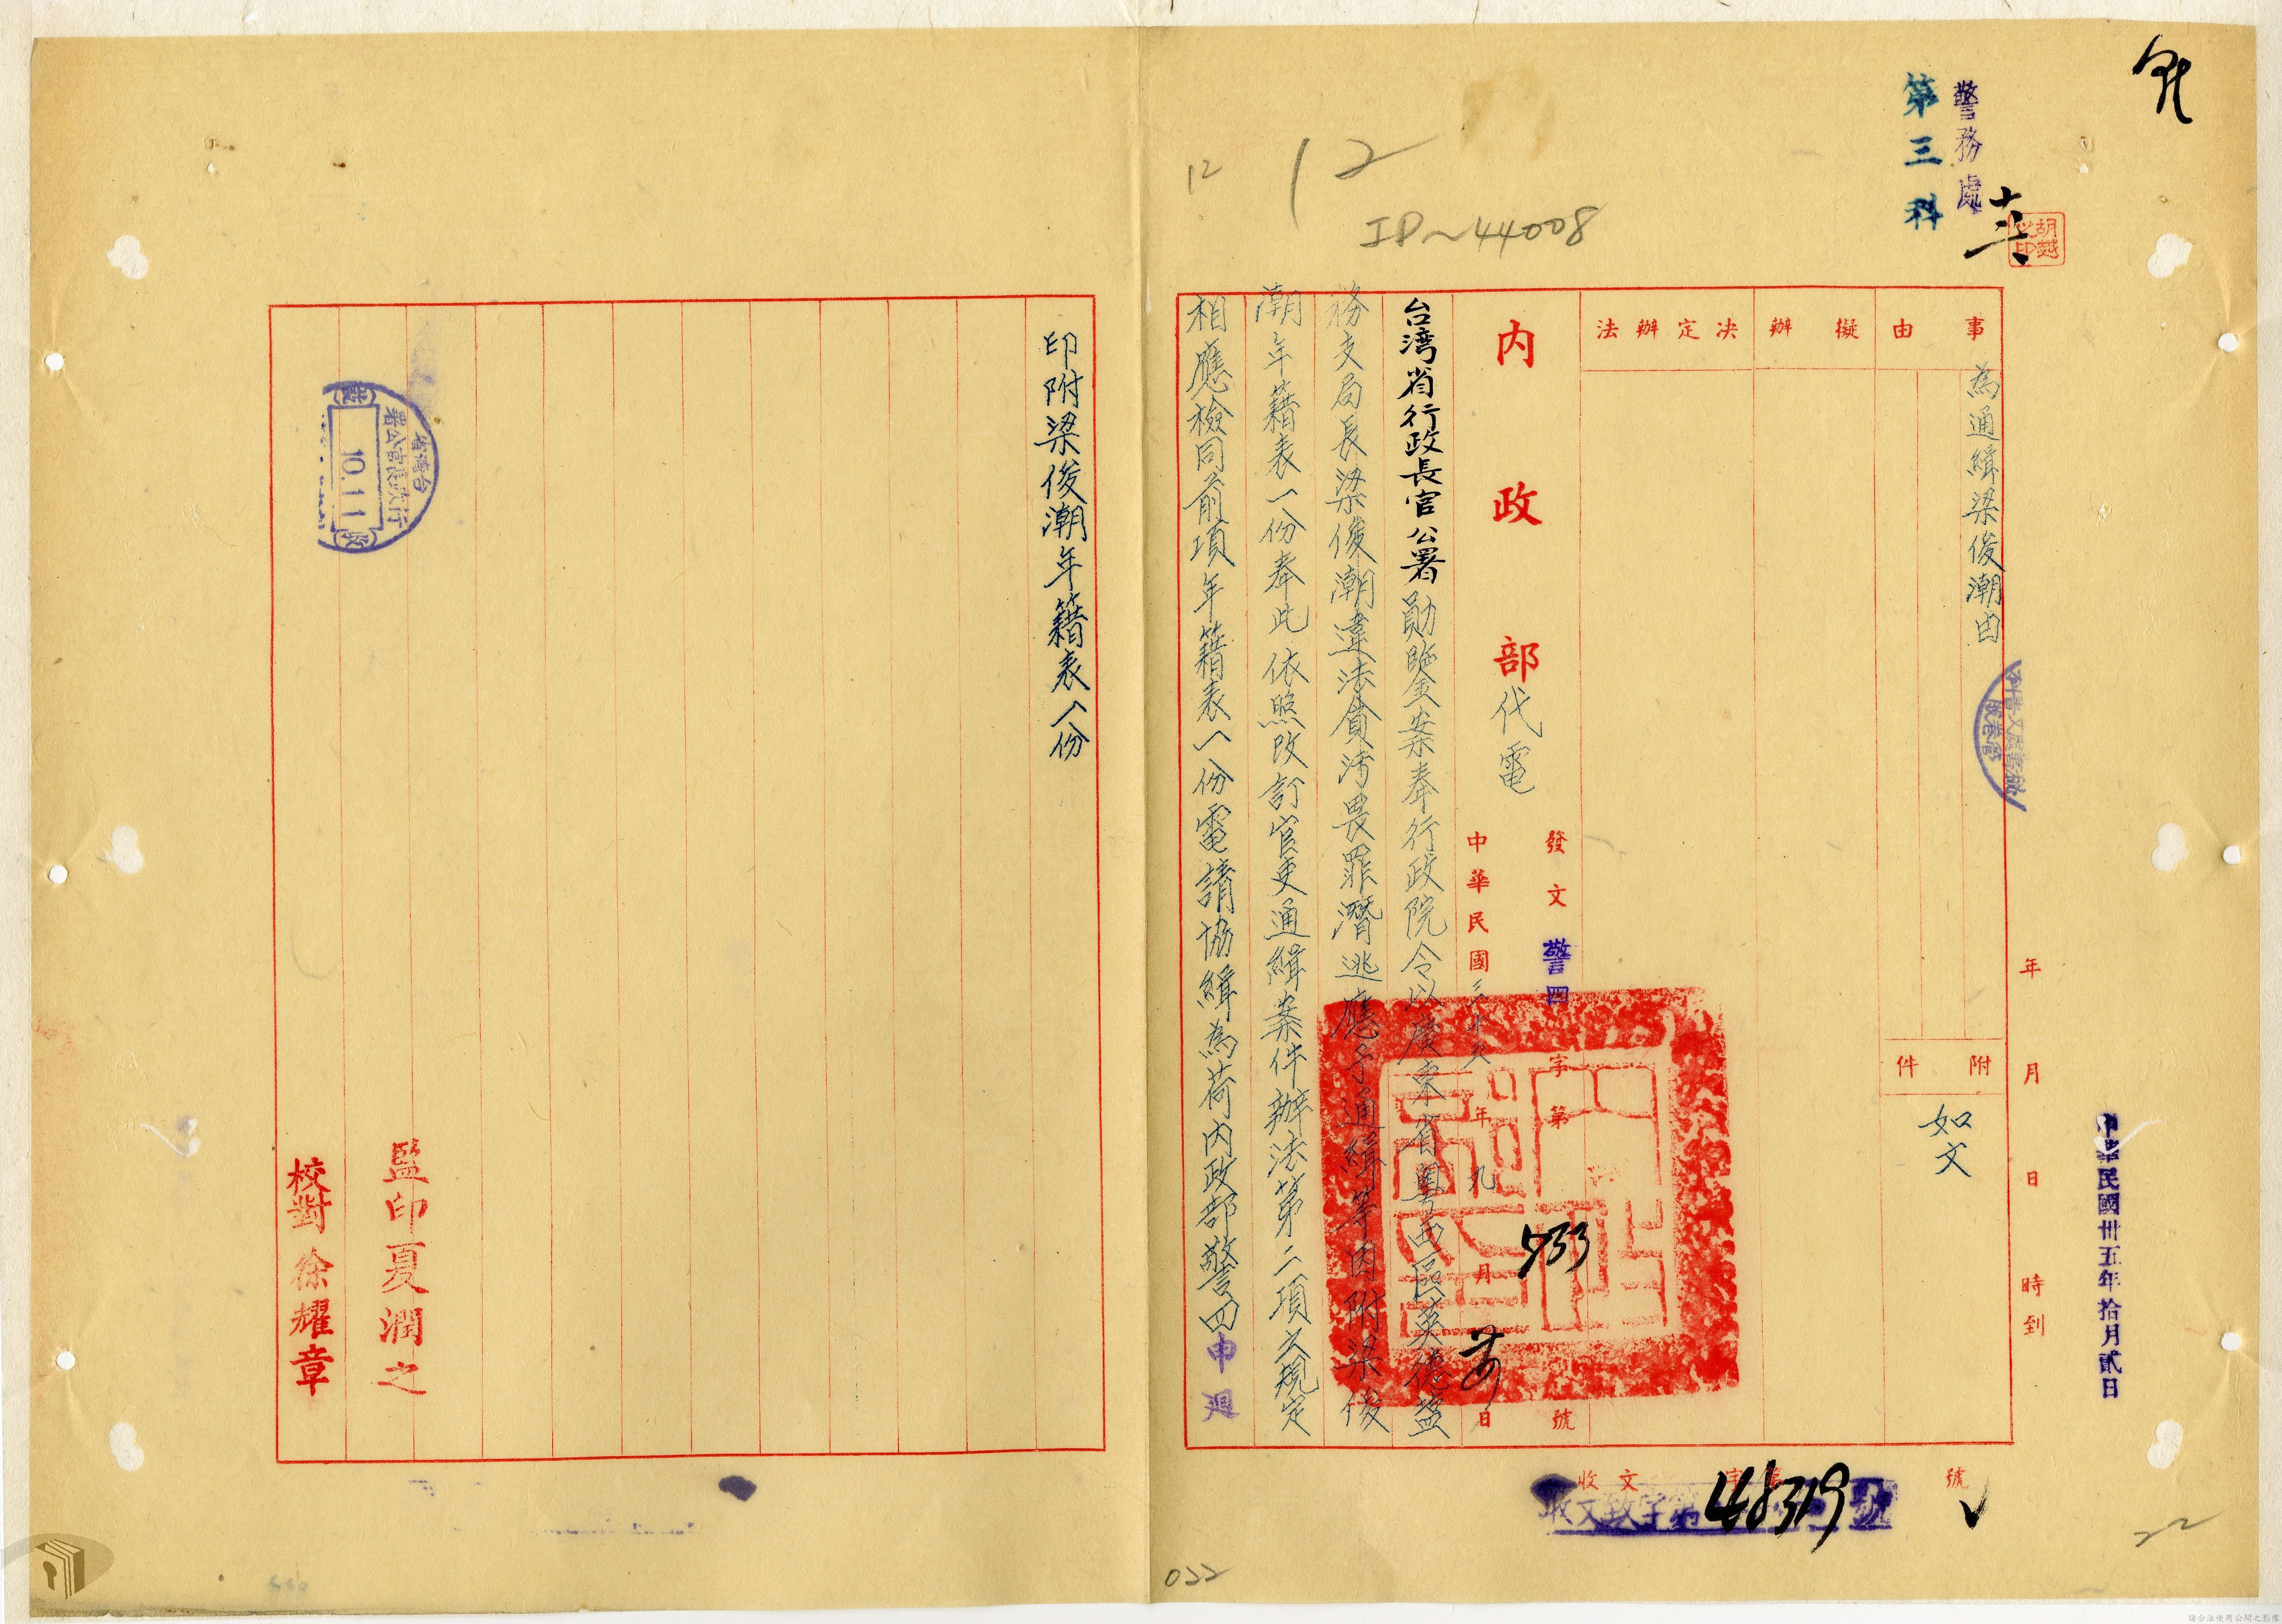 警務處
第三科
胡越之印
12
12
ID~44008
事由
為通緝梁俊潮由
附件
如文
擬辦
決定辦法
年月日時到
中華民國卅五年拾月貳日
內政部代電
發文警四字第733號
中華民國三十五年九月日
台湾省行政長官公署勛鑒案奉行政院令以廣東省粵西區英德鹽
務支局長梁俊潮違法貪污畏罪潛逃應予通緝等因附梁俊
潮年籍表一份奉此依照改訂官吏通緝案件辦法第二項之規定
相應檢同前項年籍表一份電請協緝為荷內政部警四申迴
印附梁俊潮年籍表一份
台灣省行政長官公署
10.11
收
監印夏潤之
校對徐耀章
收文字第號
收文致字第48319號
022
22
請合法使用公開之影像